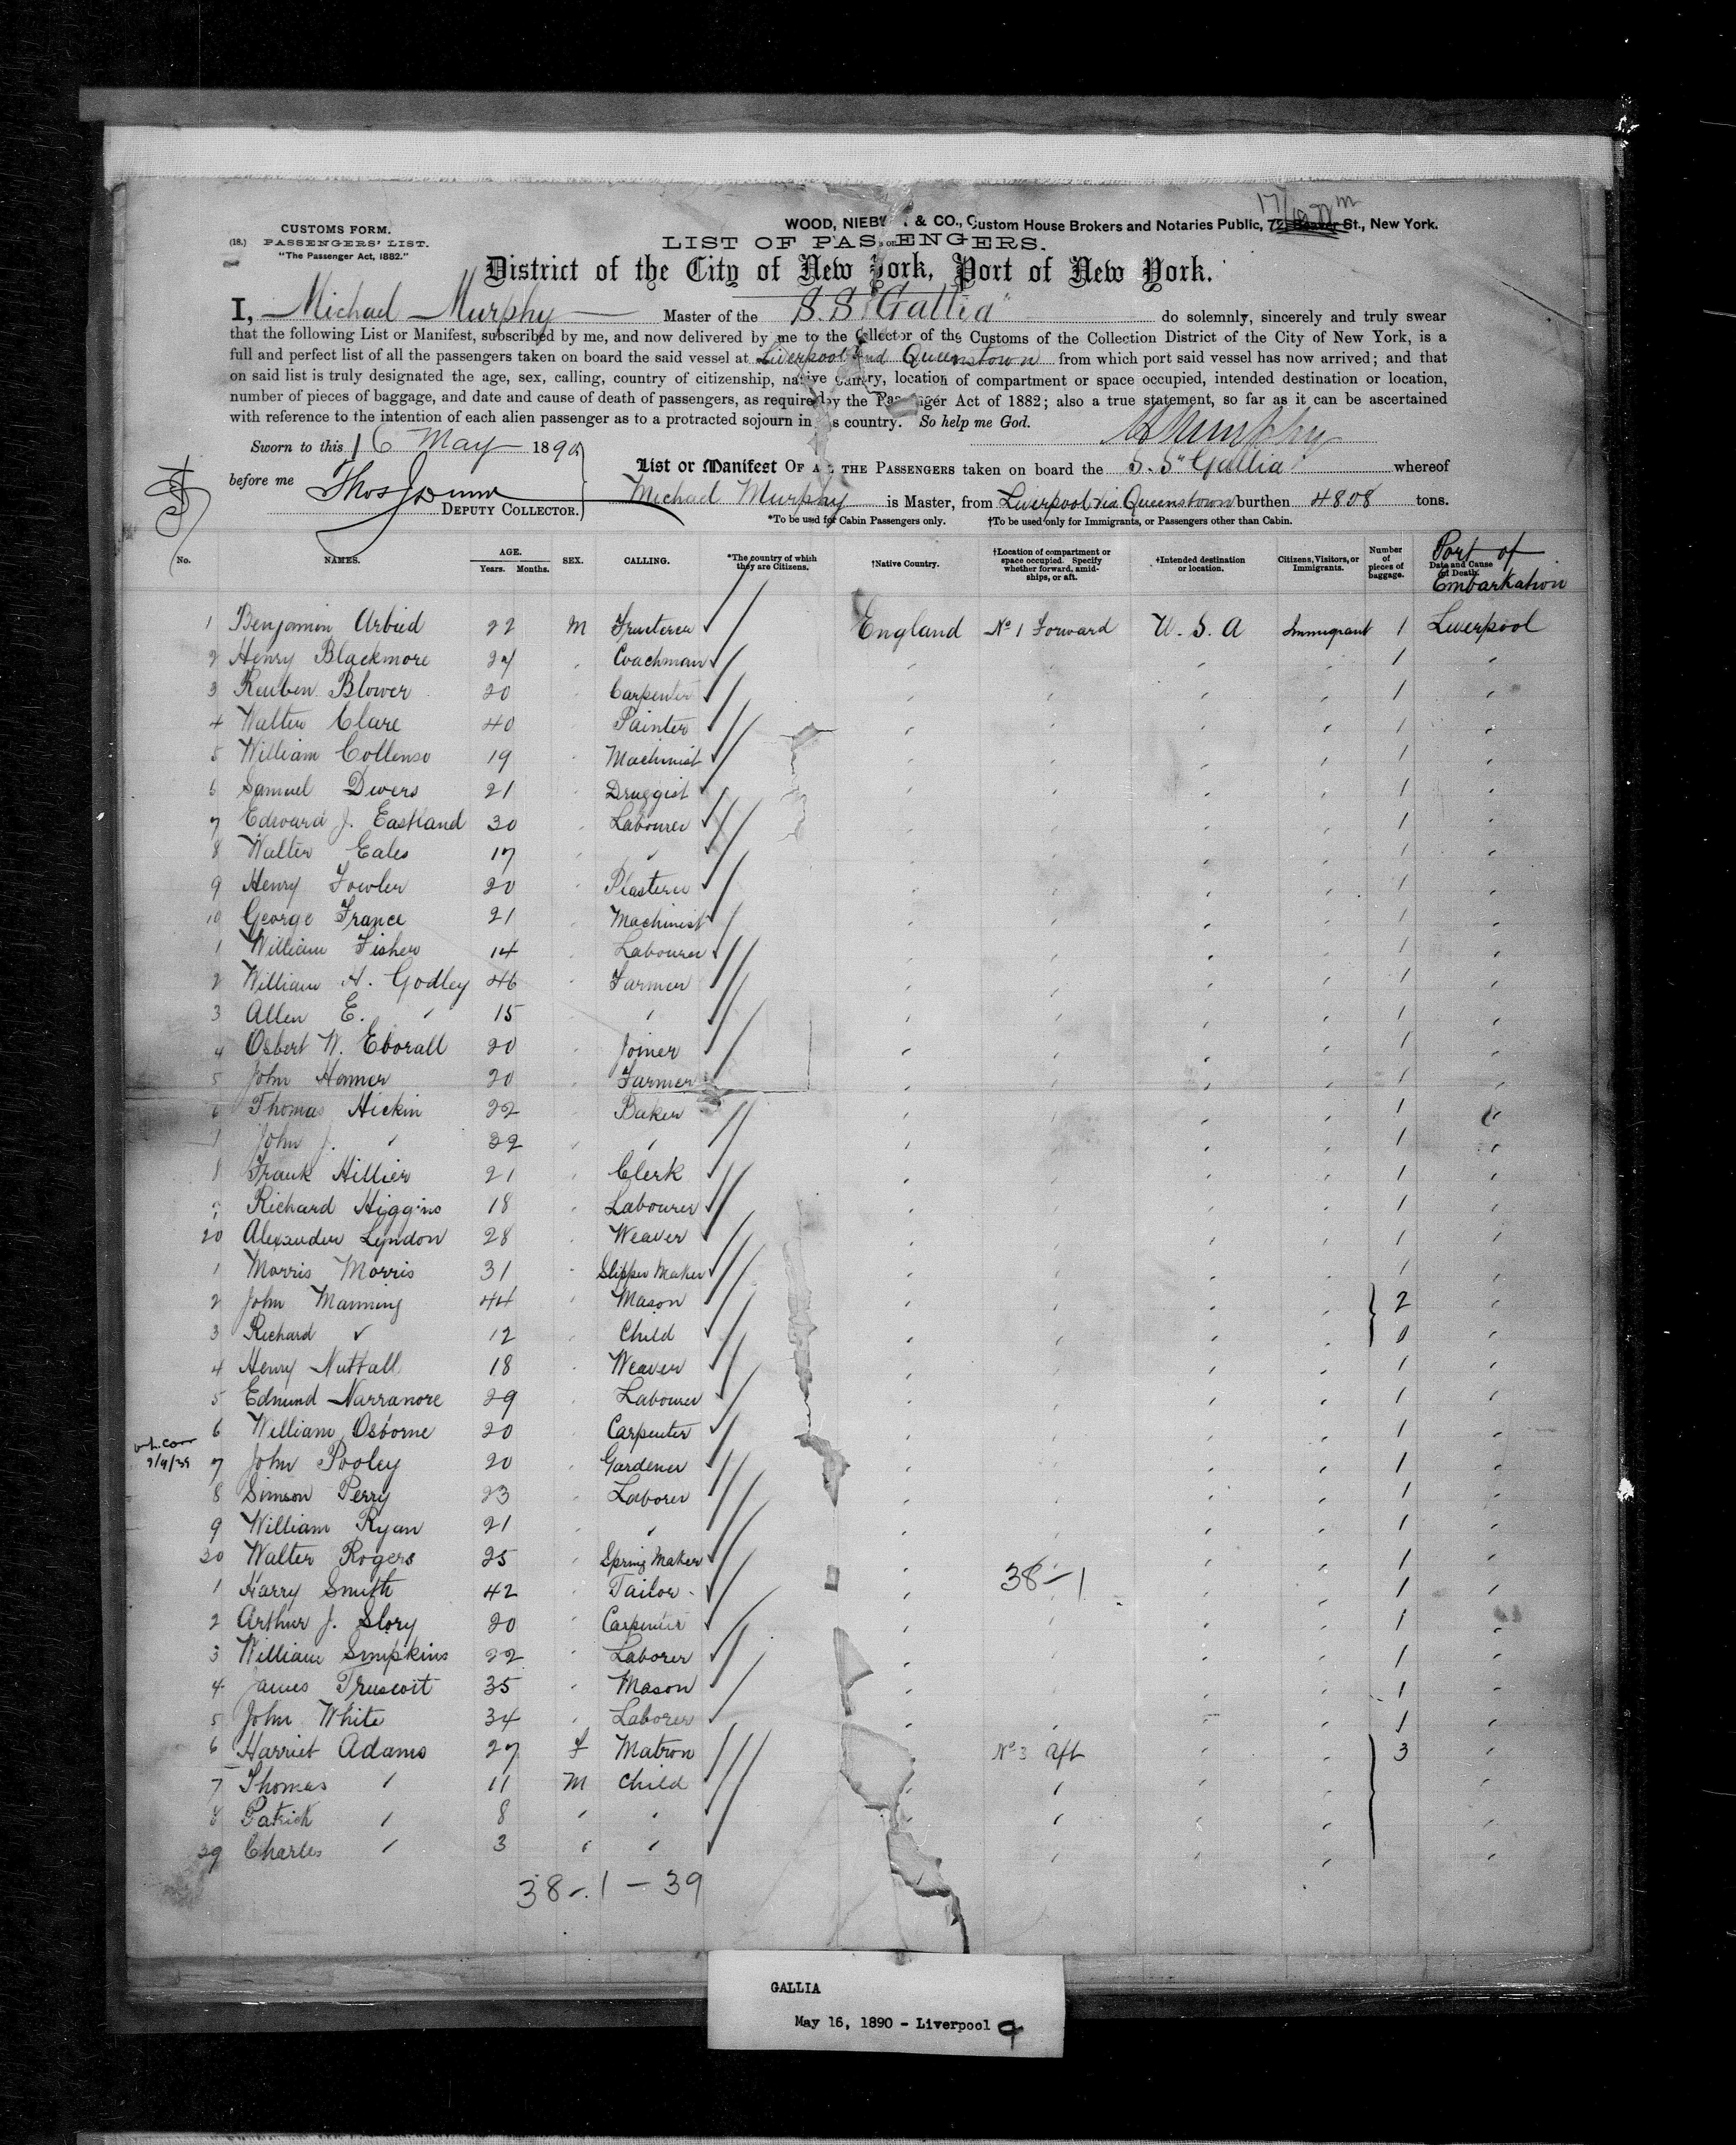 17/
WOOD, NIEB & CO., Custom House Brokers and Notaries Public, 72 Beaver St., New York.
CUSTOMS FORM.
(18.) PASSENGERS' LIST.
"The Passenger Act, 1882."
LIST OF PASSENGERS.
District of the City of New York, Port of New York.
I, Michael Murphy Master of the S.S "Gallia" do solemnly, sincerely and truly swear
that the following List or Manifest, subscribed by me, and now delivered by me to the Collector of the Customs of the Collection District of the City of New York, is a
full and perfect list of all the passengers taken on board the said vessel at Liverpool and Queenstown from which port said vessel has now arrived; and that
on said list is truly designated the age, sex, calling, country of citizenship, native country, location of compartment or space occupied, intended destination or location,
number of pieces of baggage, and date and cause of death of passengers, as required by the Passenger Act of 1882; also a true statement, so far as it can be ascertained
with reference to the intention of each alien passenger as to a protracted sojourn in this country. So help me God.
M Murphy
Sworn to this 16 May 1890
List or Manifest OF ALL THE PASSENGERS taken on board the S. S "Gallia" whereof
before me Thos
DEPUTY COLLECTOR.
Michael Murphy is Master, from Liverpool via Queenstown burthen 4808 tons.
*To be used for Cabin Passengers only. †To be used only for Immigrants, or Passengers other than Cabin.
No. NAMES. AGE. Years. Months. SEX. CALLING. *The country of which they are Citizens. †Native Country. †Location of compartment or space occupied. Specify whether forward, amidships, or aft. †Intended destination or location. Citizens, Visitors, or Immigrants. Number of pieces of baggage. Date and Cause of Death. Port of Embarkation
1 Benjamin Arbied 22 M Fruiterer England No 1 Forward U. S. A Immigrant 1 Liverpool
2 Henry Blackmore 24 Coachman 1
3 Reuben Blower 20 Carpenter 1
4 Walter Clare 40 Painter 1
5 William Collenso 19 Machinist 1
6 Samuel Divers 21 Druggist 1
7 Edward J. Eastland 30 Labourer 1
8 Walter Eales 17 " 1
9 Henry Fowler 20 Plasterer 1
10 George France 21 Machinist 1
1 William Fisher 14 Labourer 1
2 William H. Godley 46 Farmer 1
3 Allen E. " 15 " 1
4 Osbert W. Eborall 20 Joiner 1
5 John Honner 20 Farmer 1
6 Thomas Hickin 22 Baker 1
John J. " 32 " 1
8 Frank Hillier 21 Clerk 1
Richard Higgins 18 Labourer 1
20 Alexander Lyndon 28 Weaver 1
1 Morris Morris 31 Slipper Maker 1
2 John Manning 44 Mason 2
3 Richard " 12 Child 0
4 Henry Nuttall 18 Weaver 1
5 Edmund Narranore 29 Labourer 1
6 William Osborne 20 Carpenter 1
7 John Pooley 20 Gardener 1
8 Simson Perry 23 Laborer 1
9 William Ryan 21 " 1
30 Walter Rogers 25 Spring Maker 1
38-1
1 Harry Smith 42 Tailor 1
2 Arthur J. Slory 20 Carpenter 1
3 William Simpkins 22 Laborer 1
4 James Truscott 35 Mason 1
5 John White 34 Laborer 1
6 Harriet Adams 27 F Matron No 3 Aft 3
7 Thomas " 11 M Child
8 Patrick " 8 " "
39 Charles " 3 " "
38-1-39
GALLIA
May 16, 1890 - Liverpool 9